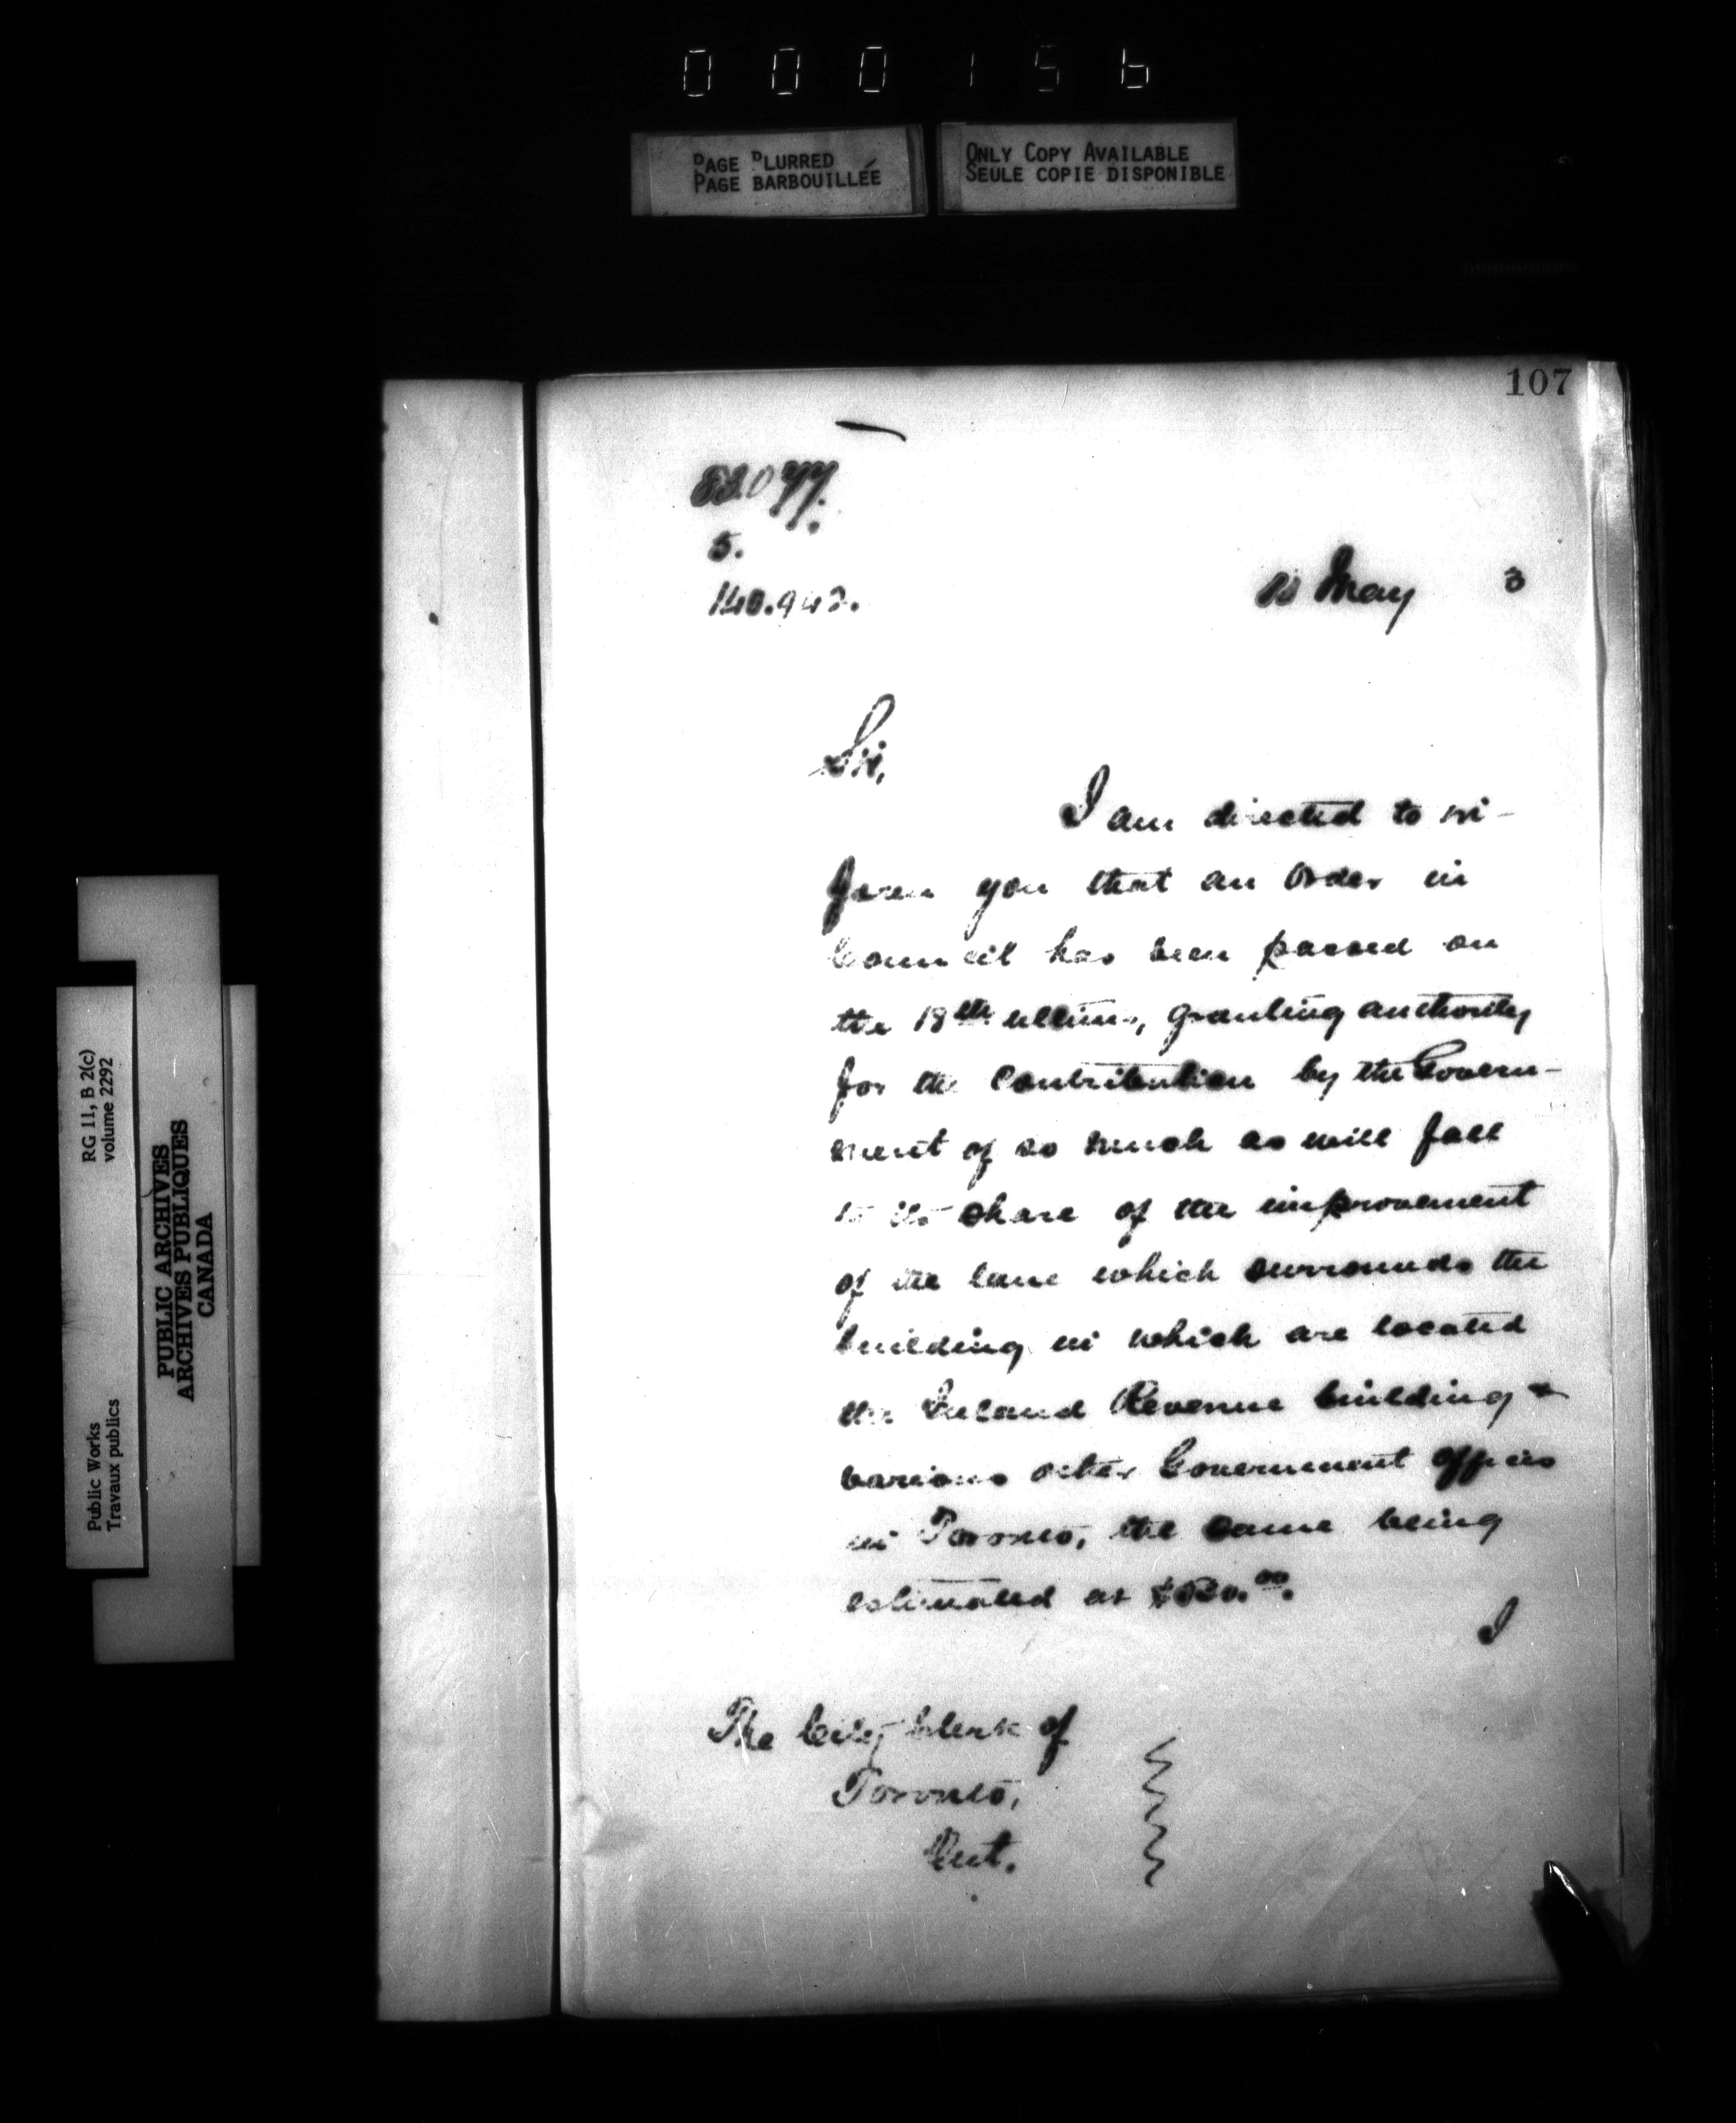 000156
PAGE BLURRED
PAGE BARBOUILLÉE
ONLY COPY AVAILABLE
SEULE COPIE DISPONIBLE
107
5.
140.942.
May 3
Sir,
I am directed to in-
form you that an Order in
Council has been passed on
the 18th ultimo, granting authority
for the contribution by the Govern-
ment of so much as will fall
to its share of the improvement
of the lane which surrounds the
building in which are located
the Inland Revenue building &
various other Government offices
in Toronto, the same being
estimated at
I
The City Clerk of
Toronto,
Ont.
RG 11, B 2(c)
volume 2292
Public Works
Travaux publics
PUBLIC ARCHIVES
ARCHIVES PUBLIQUES
CANADA